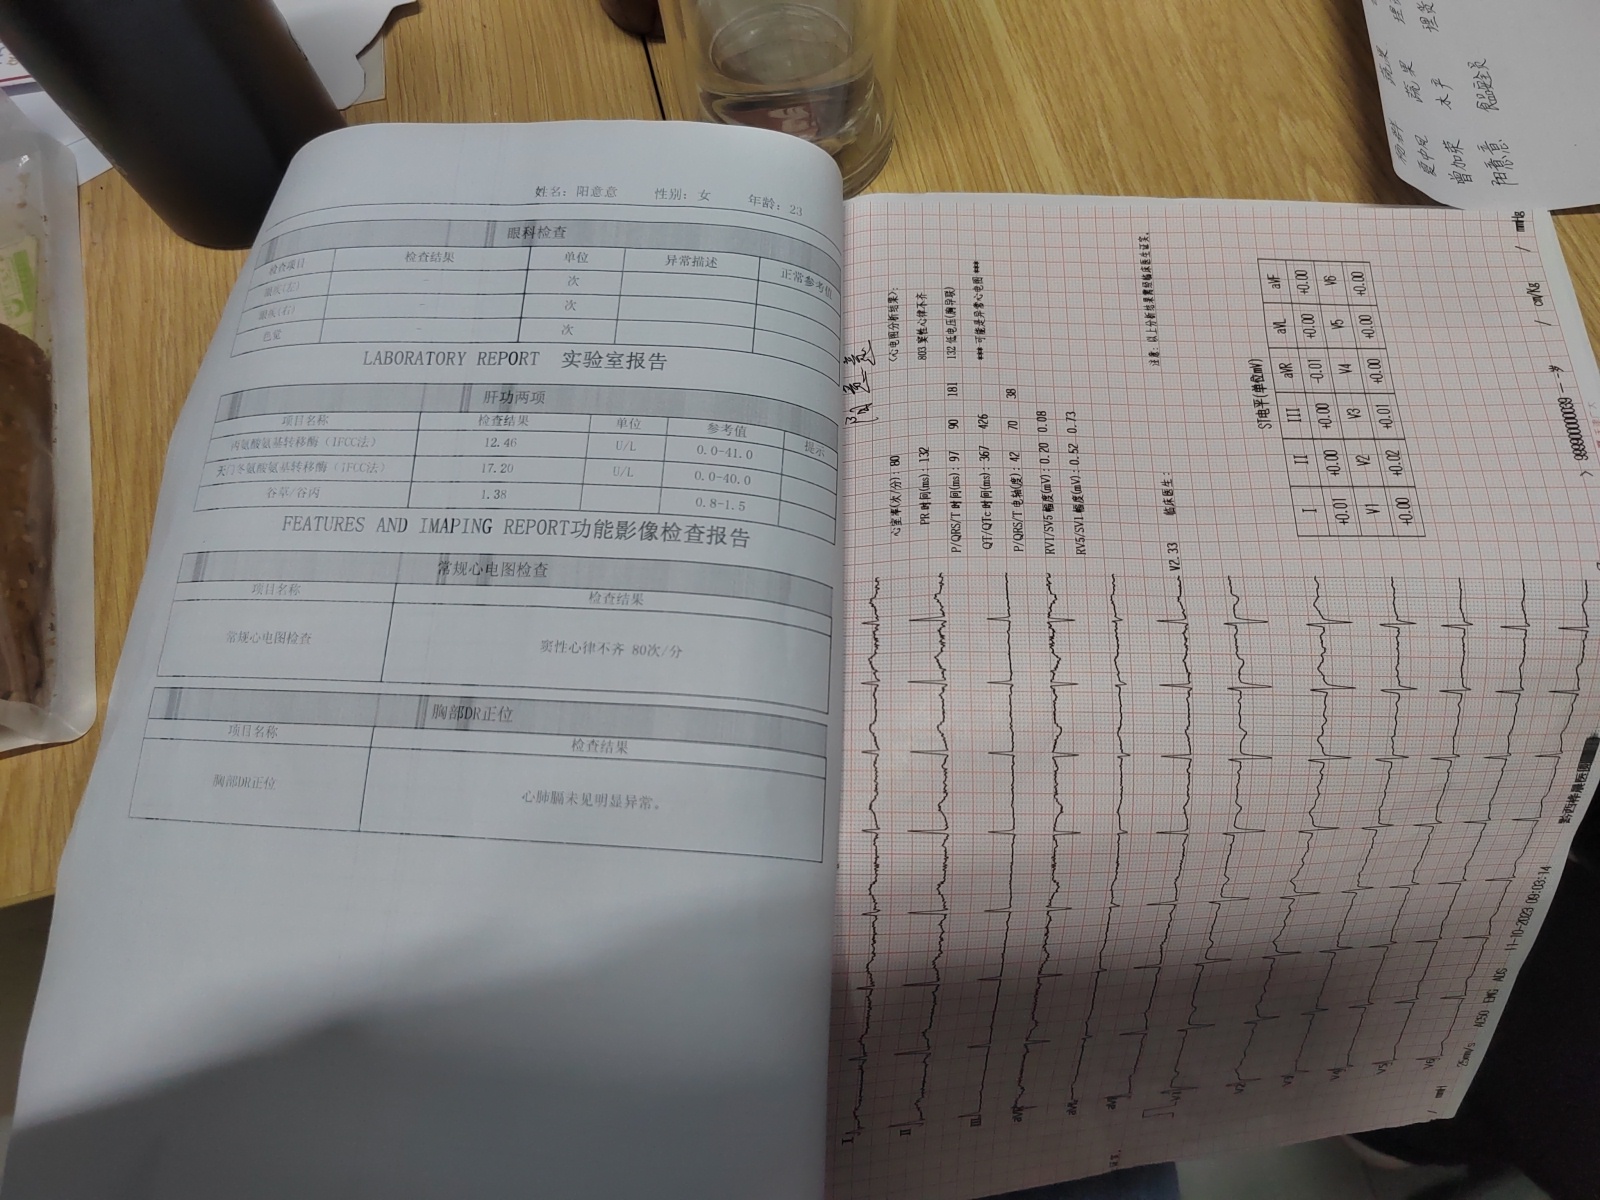 姓名：阳意意 性别：女 年龄：23
眼科检查
检查项目 检查结果 单位 异常描述 正常参考值
眼疾(左) - 次
眼疾(右) - 次
色觉 - 次
LABORATORY REPORT 实验室报告
肝功两项
项目名称 检查结果 单位 参考值 提示
丙氨酸氨基转移酶（IFCC法） 12.46 U/L 0.0-41.0
天门冬氨酸氨基转移酶（IFCC法） 17.20 U/L 0.0-40.0
谷草/谷丙 1.38 0.8-1.5
FEATURES AND IMAPING REPORT功能影像检查报告
常规心电图检查
项目名称 检查结果
常规心电图检查 窦性心律不齐 80次/分
胸部DR正位
项目名称 检查结果
胸部DR正位 心肺膈未见明显异常。
阳意意
心室率(次/分)：80
PR 时间(ms)：132
P/QRS/T 时间(ms)：97 90 181
QT/QTc 时间(ms)：367 426
P/QRS/T 电轴(度)：42 70 38
RV1/SV5 幅度(mV)：0.20 0.08
RV5/SV1 幅度(mV)：0.52 0.73
《心电图分析结果》：
803 窦性心律不齐
132 低电压(胸导联)
*** 可能是异常心电图 ***
临床医生：
注意：以上分析结果需经临床医生证实。
V2.33
ST电平(单位mV)
I II III aVR aVL aVF
+0.01 +0.00 +0.00 -0.01 +0.00 +0.00
V1 V2 V3 V4 V5 V6
+0.00 +0.02 +0.01 +0.00 +0.00 +0.00
I
II
III
aVR
aVL
aVF
V1
V2
V3
V4
V5
V6
25mm/s AC50 EMG ADS 11-10-2023 09:03:14
989900000039 -- --岁 / cm/Kg / mmHg
增加荣 水产
阳意意 食品安全员